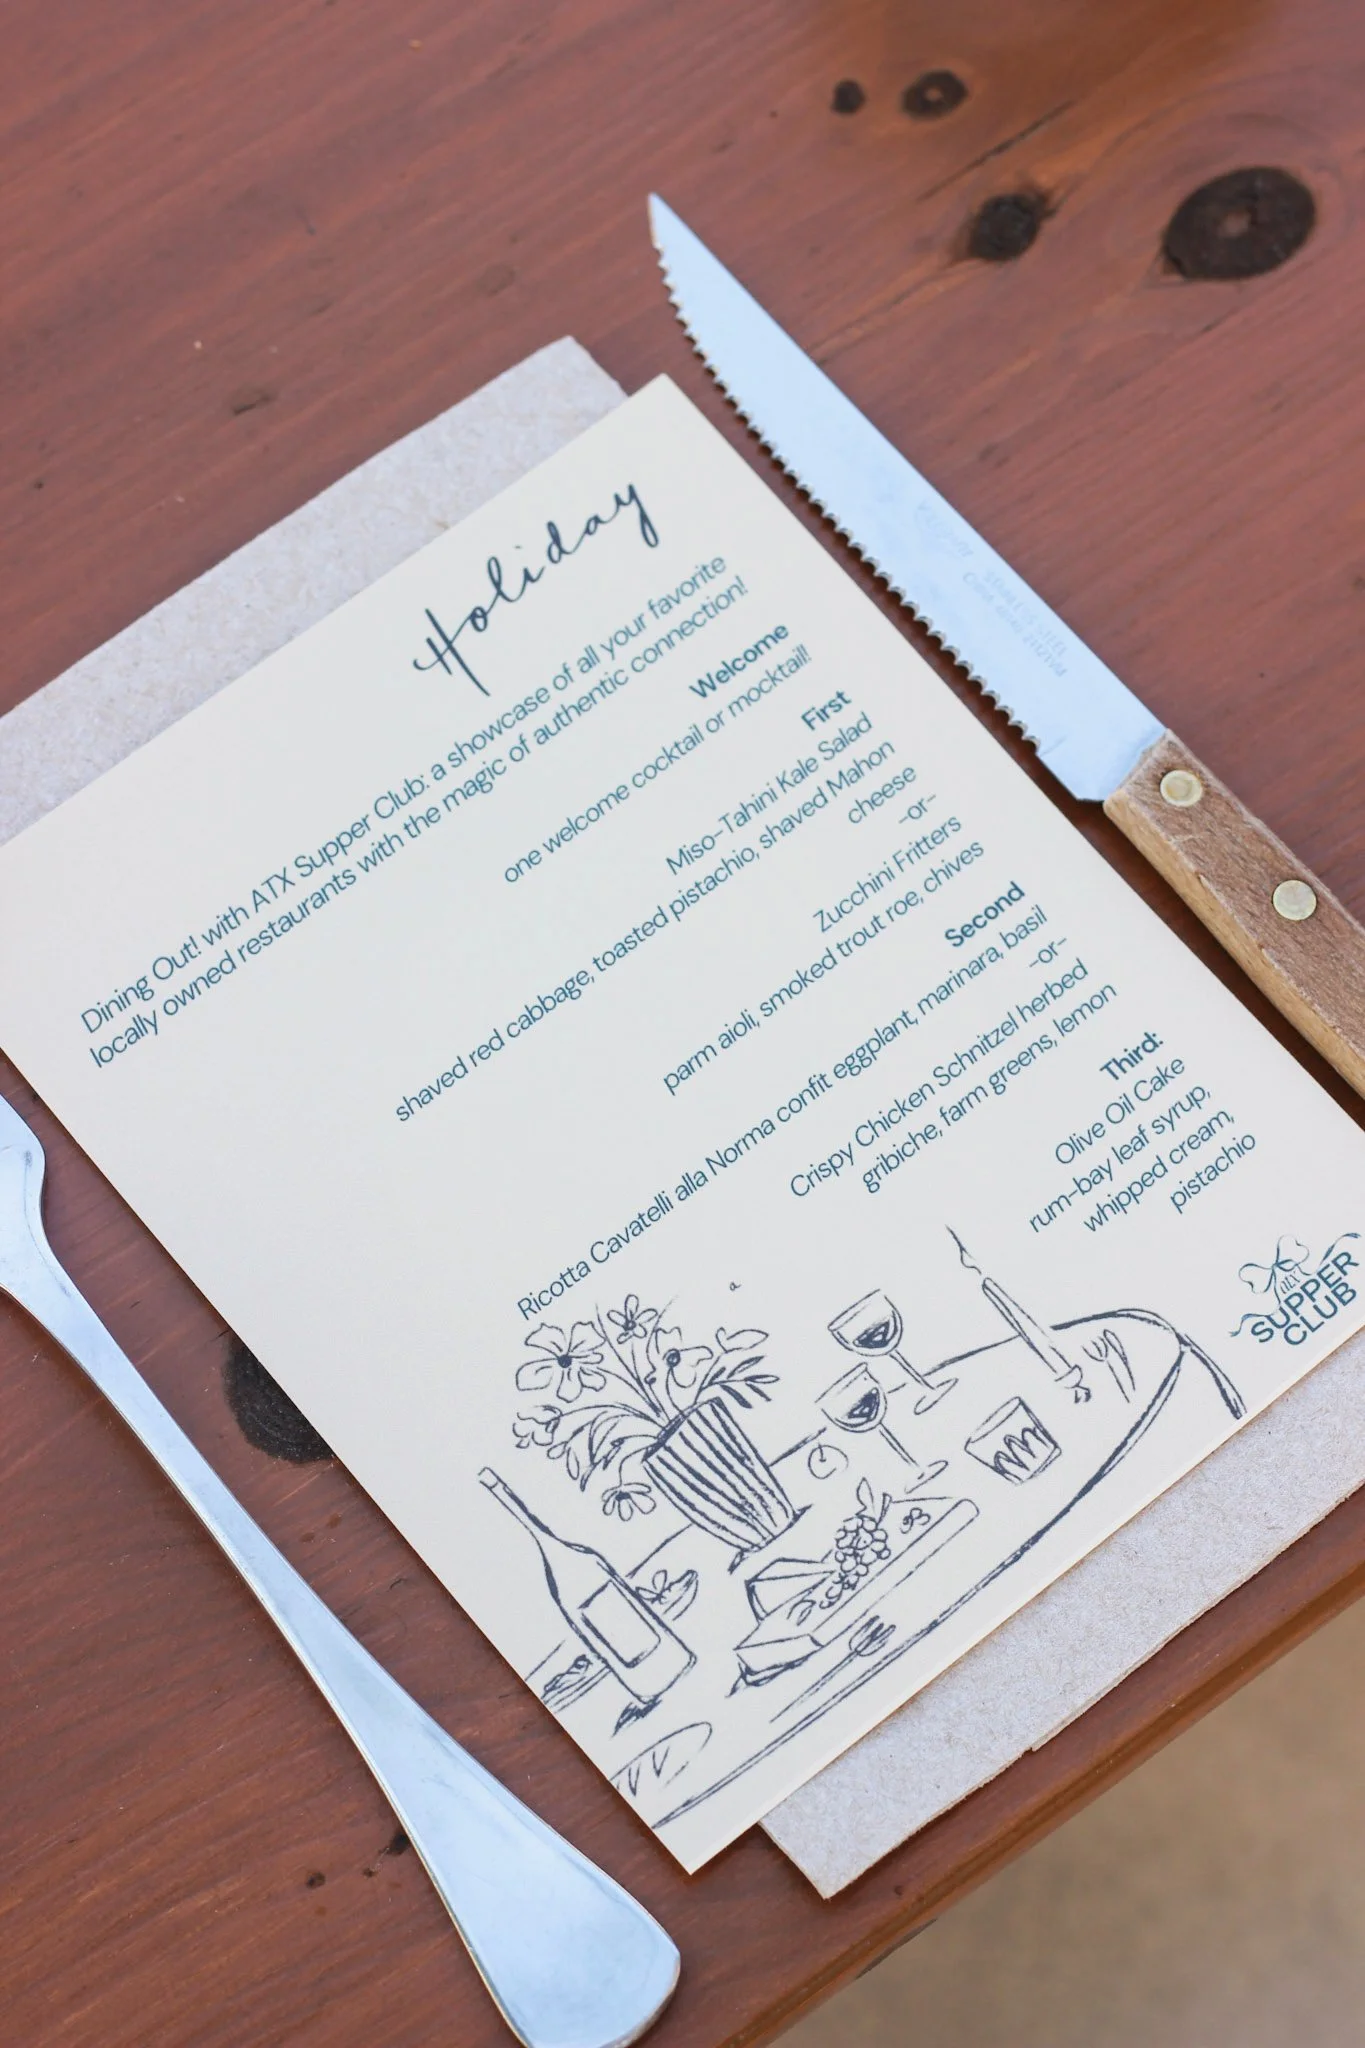 Holiday
Dining Out! with ATX Supper Club: a showcase of all your favorite
locally owned restaurants with the magic of authentic connection!
Welcome
one welcome cocktail or mocktail!
First
Miso-Tahini Kale Salad
shaved red cabbage, toasted pistachio, shaved Mahon
cheese
-or-
Zucchini Fritters
parm aioli, smoked trout roe, chives
Second
Ricotta Cavatelli alla Norma confit eggplant, marinara, basil
-or-
Crispy Chicken Schnitzel herbed
gribiche, farm greens, lemon
Third:
Olive Oil Cake
rum-bay leaf syrup,
whipped cream,
pistachio
ATX
SUPPER
CLUB